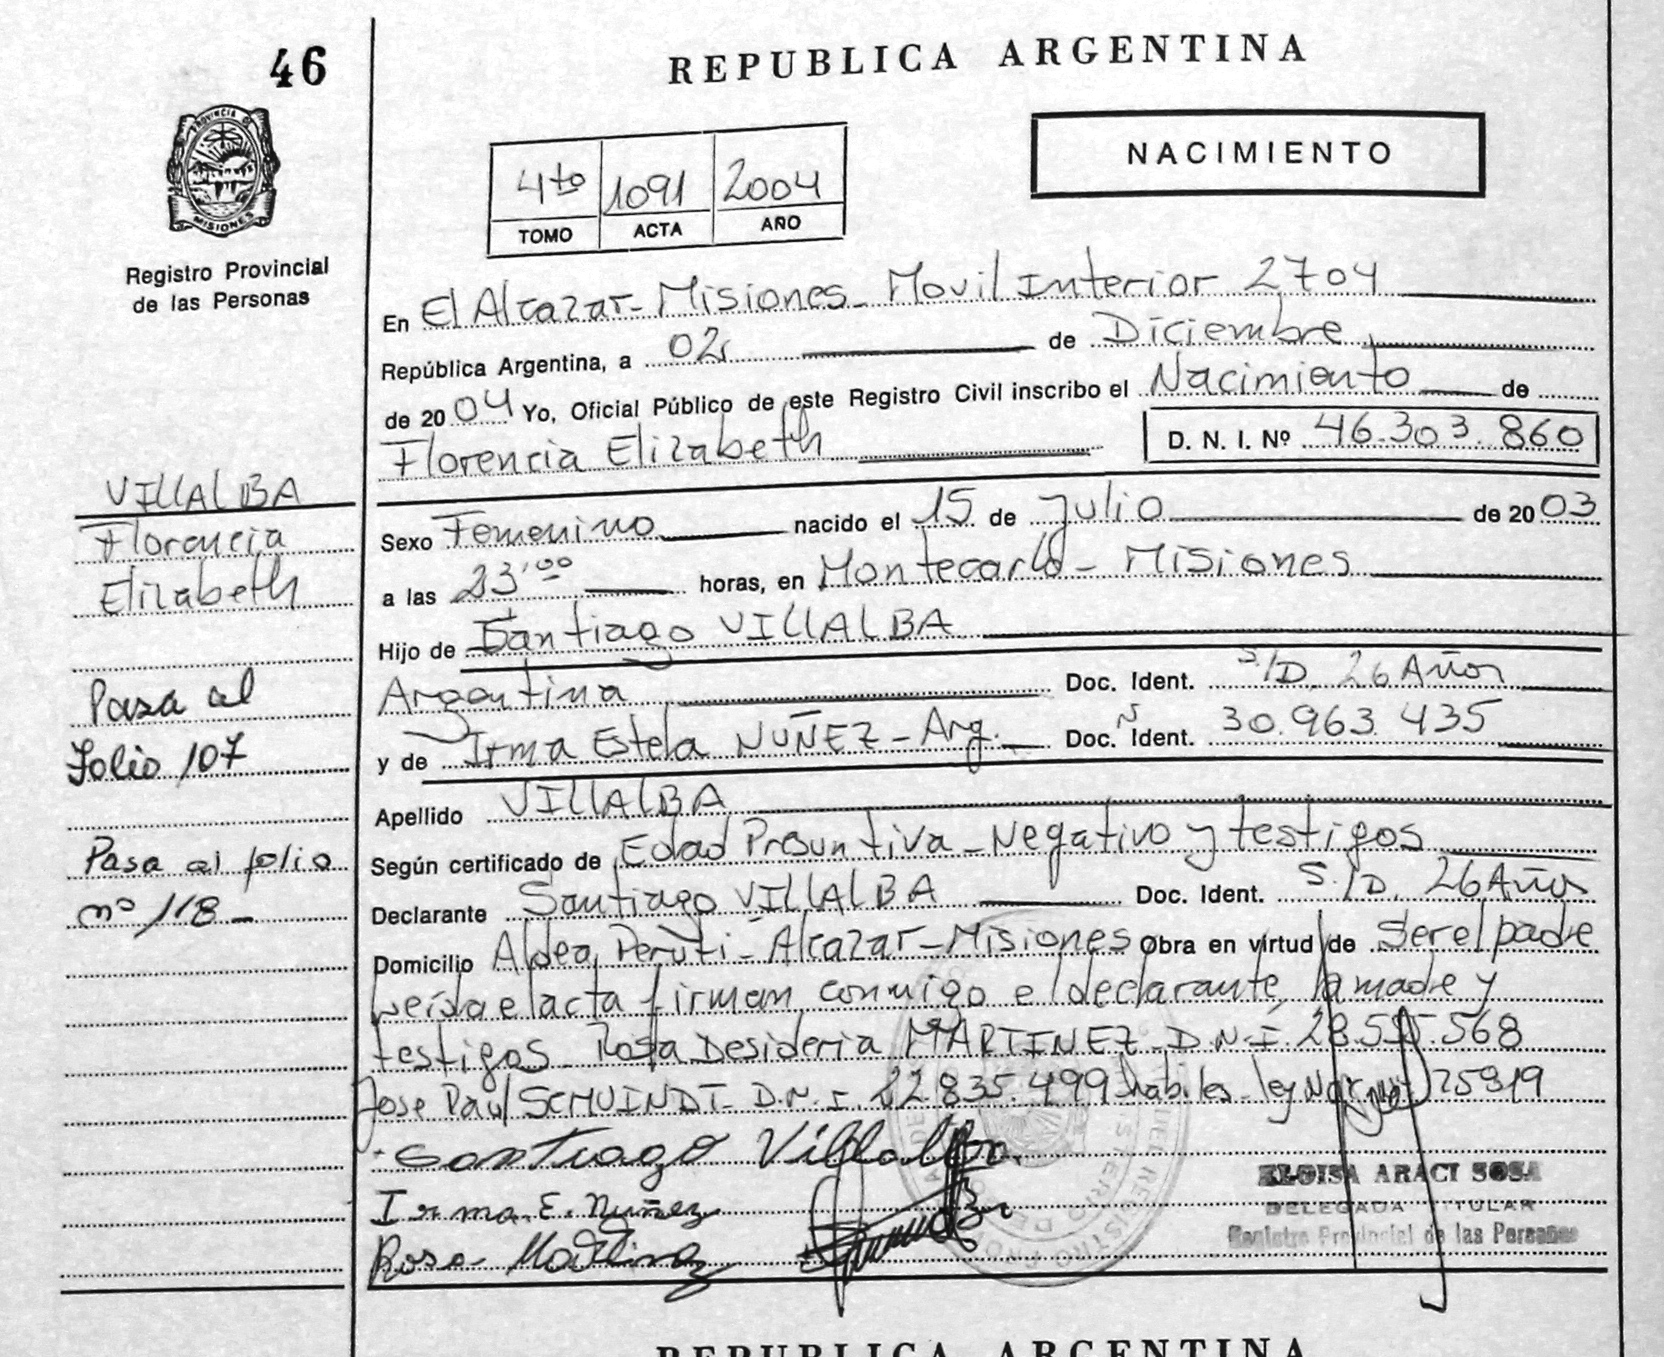 46
REPUBLICA ARGENTINA
PROVINCIA DE
MISIONES
Registro Provincial
de las Personas
NACIMIENTO
4to 1091 2004
TOMO ACTA AÑO
En El Alcazar - Misiones - Movil Interior 2704
República Argentina, a 02 de Diciembre
de 2004 Yo, Oficial Público de este Registro Civil inscribo el Nacimiento de
Florencia Elizabeth D. N. I. Nº 46.303.860
VILLALBA
Florencia
Elizabeth
Pasa al
folio 107
Pasa al folio
nº 118 -
Sexo Femenino nacido el 15 de Julio de 2003
a las 23'00 horas, en Montecarlo - Misiones
Hijo de Santiago VILLALBA
Argentina Doc. Ident. S/D. 26 Años
y de Irma Estela NUÑEZ - Arg. Doc. Ident. 30.963.435
Apellido VILLALBA
Según certificado de Edad Presuntiva - Negativo y testigos
Declarante Santiago VILLALBA Doc. Ident. S./D. 26 Años
Domicilio Aldea Peruti - Alcazar - Misiones Obra en virtud de Ser el padre
Leída el acta firman conmigo el declarante, la madre y
testigos Rosa Desideria MARTINEZ - D.N.I. 28.555.568
Jose Paul SCMUINDT - D.N.I. 22.835.499 habiles - ley 25819
Santiago Villalba
Irma. E. Nuñez
Rosa Martinez
ELOISA ARACI SOSA
DELEGADA TITULAR
Registro Provincial de las Personas
REPUBLICA ARGENTINA